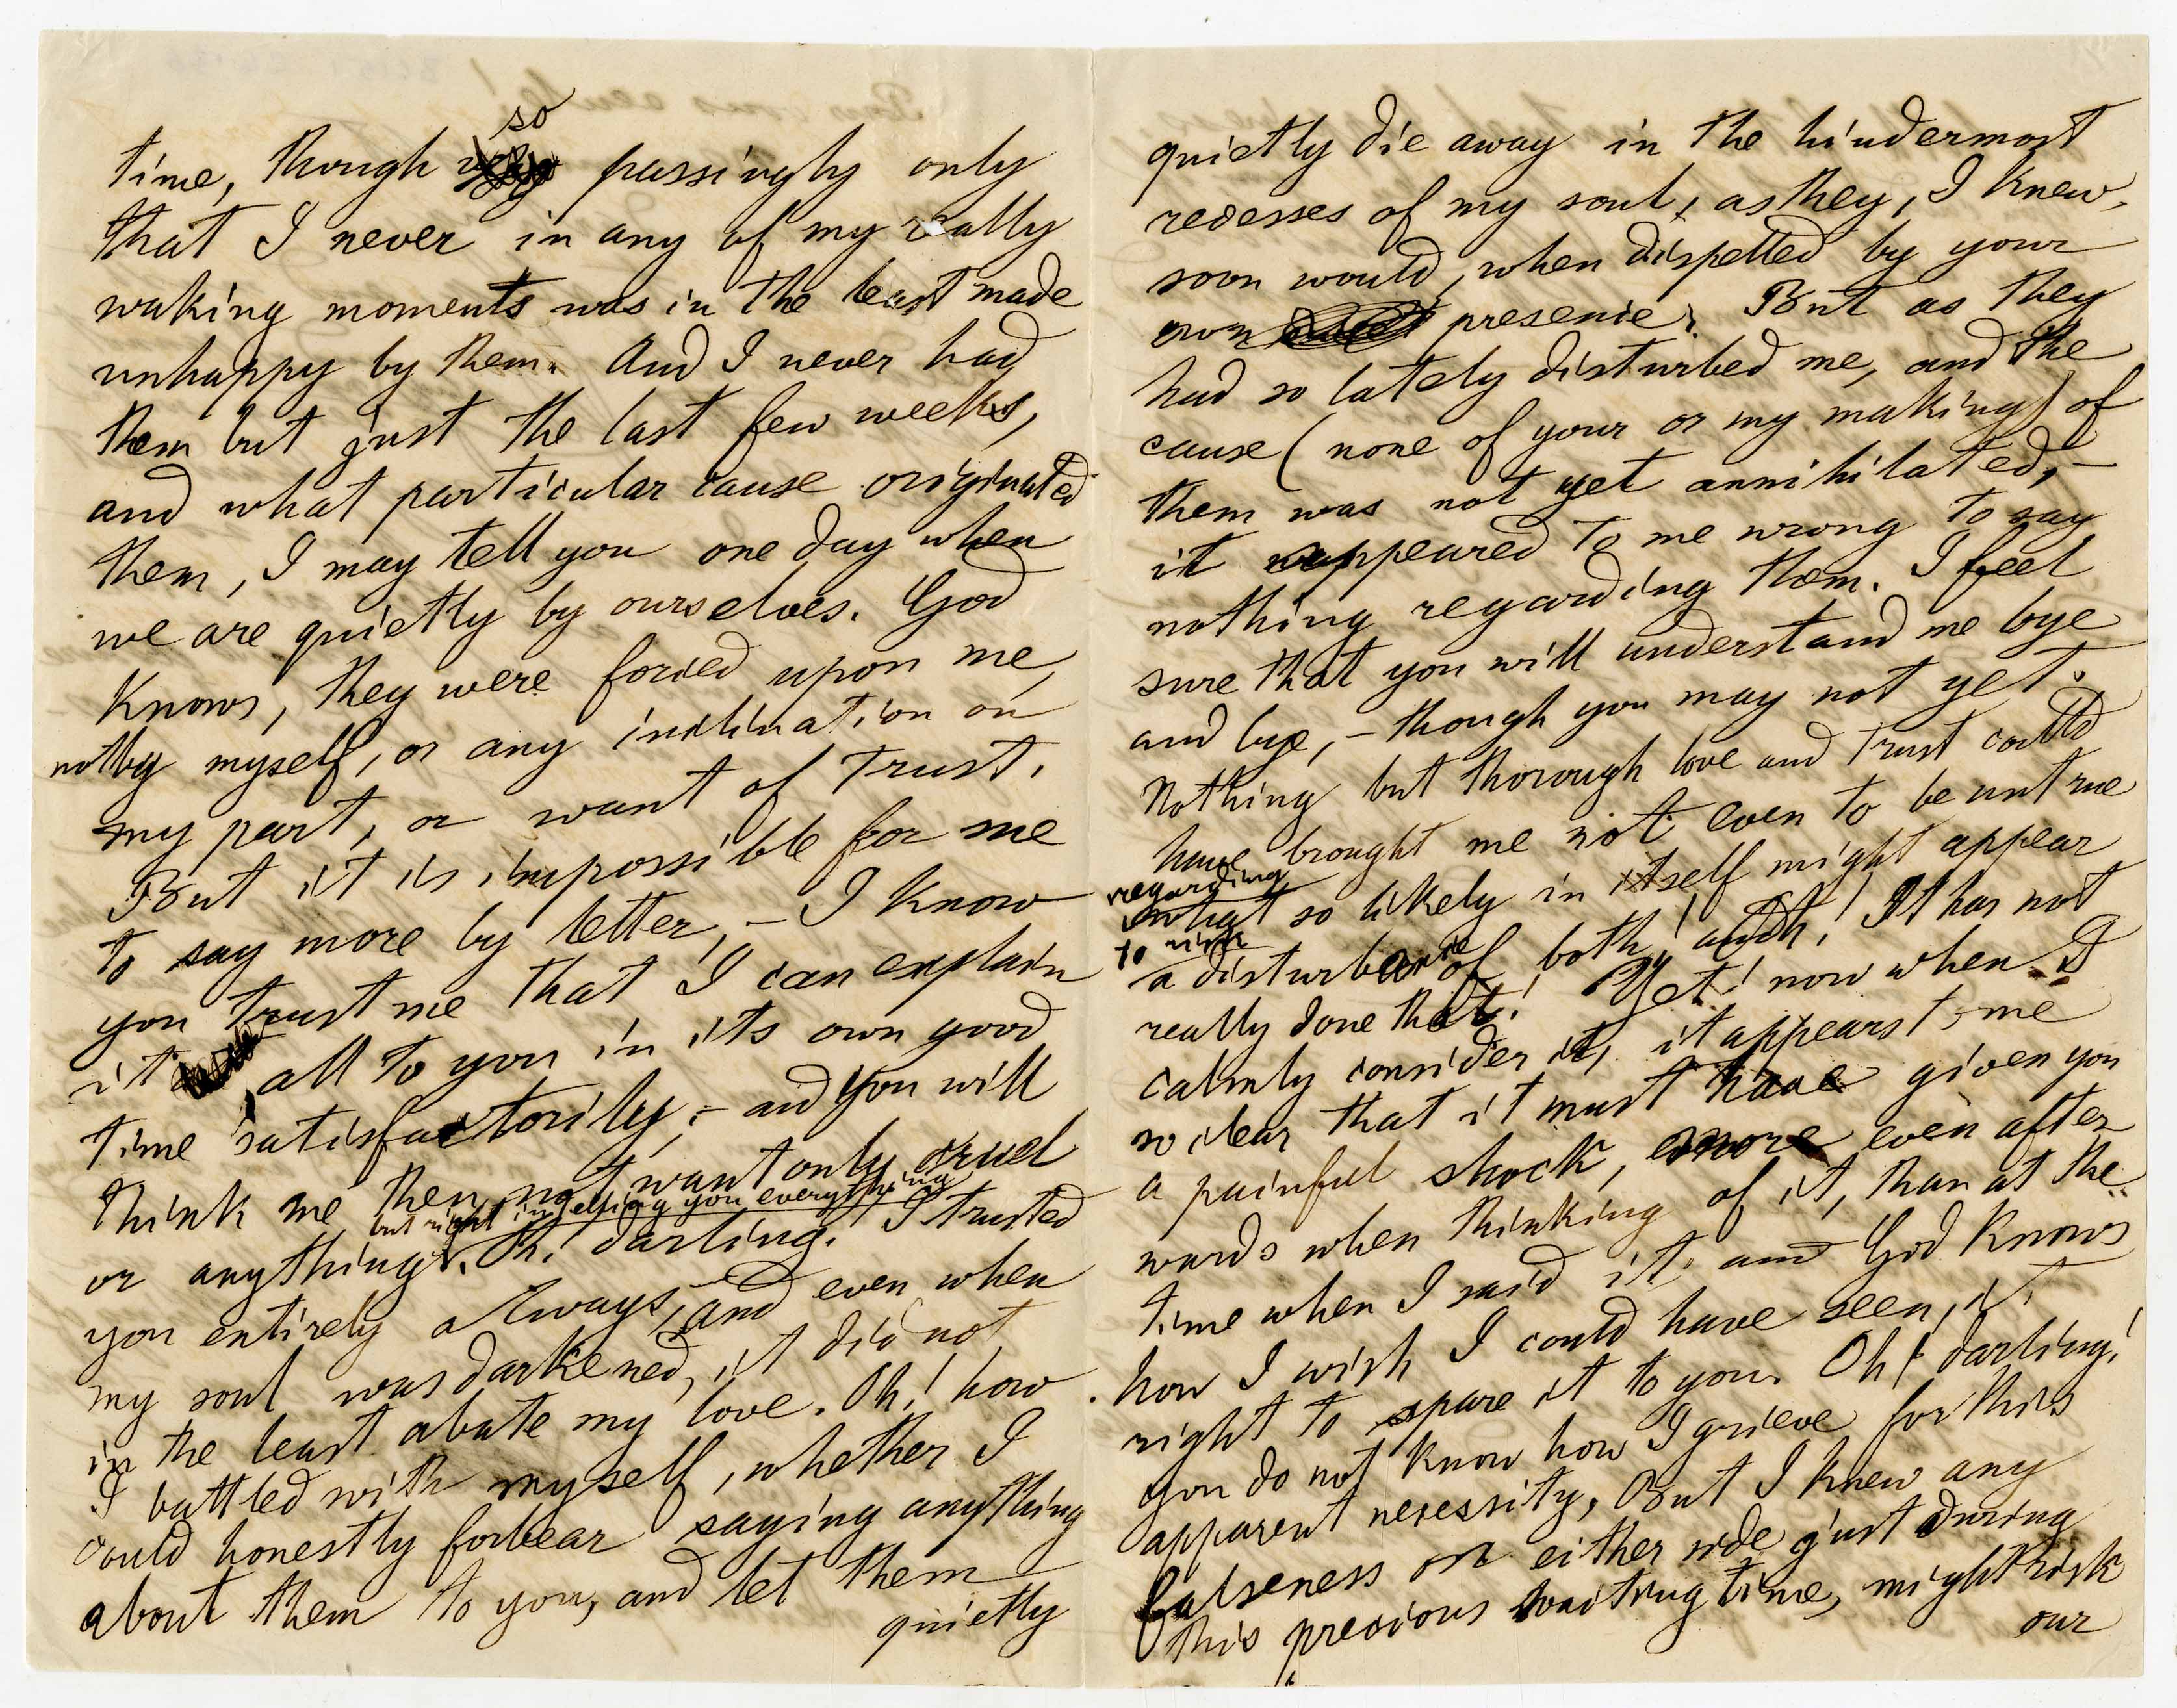 so
time, though passingly only
that I never in any of my really
waking moments was in the least made
unhappy by them. And I never had
them but just the last few weeks,
and what particular cause originated
them, I may tell you one day when
we are quietly by ourselves. God
Knows, they were forced upon me,
not by myself, or any inclination on
my part, or want of Trust.
But it is impossible for me
to say more by letter, – I know
you trust me that I can explain
it all to you in its own good
time satisfactorily, – and you will
think me then not wantonly cruel
but right in telling you everything
or anything. Oh! darling! I trusted
you entirely always, and even when
my soul was darkened, it did not
in the least abate my love. Oh! how
I battled with myself, whether I
could honestly forbear saying anything
about them to you, and let them
quietly
quietly die away in the hindermost
recesses of my soul, as they, I knew,
soon would, when dispelled by your
own presence. But as they
had so lately disturbed me, and the
cause (none of your or my making) of
them was not yet annihilated, –
it appeared to me wrong to say
nothing regarding them. I feel
sure that you will understand me bye
and bye, – though you may not yet.
Nothing but thorough love and trust could
have brought me not even to be untrue
regarding
what so likely in itself might appear
to risk
a disturbance of both, and oh! It has not
really done that! Yet! now when I
calmly consider it, it appears to me
so clear that it must have given you
a painful shock, more even after
wards when thinking of it, than at the
time when I said it, and God Knows
how I wish I could have seen it
right to spare it to you. Oh! darling!
you do not know how I grieve for this
apparent necessity, But I knew any
falseness on either side just during
this precious waiting time, might risk
our